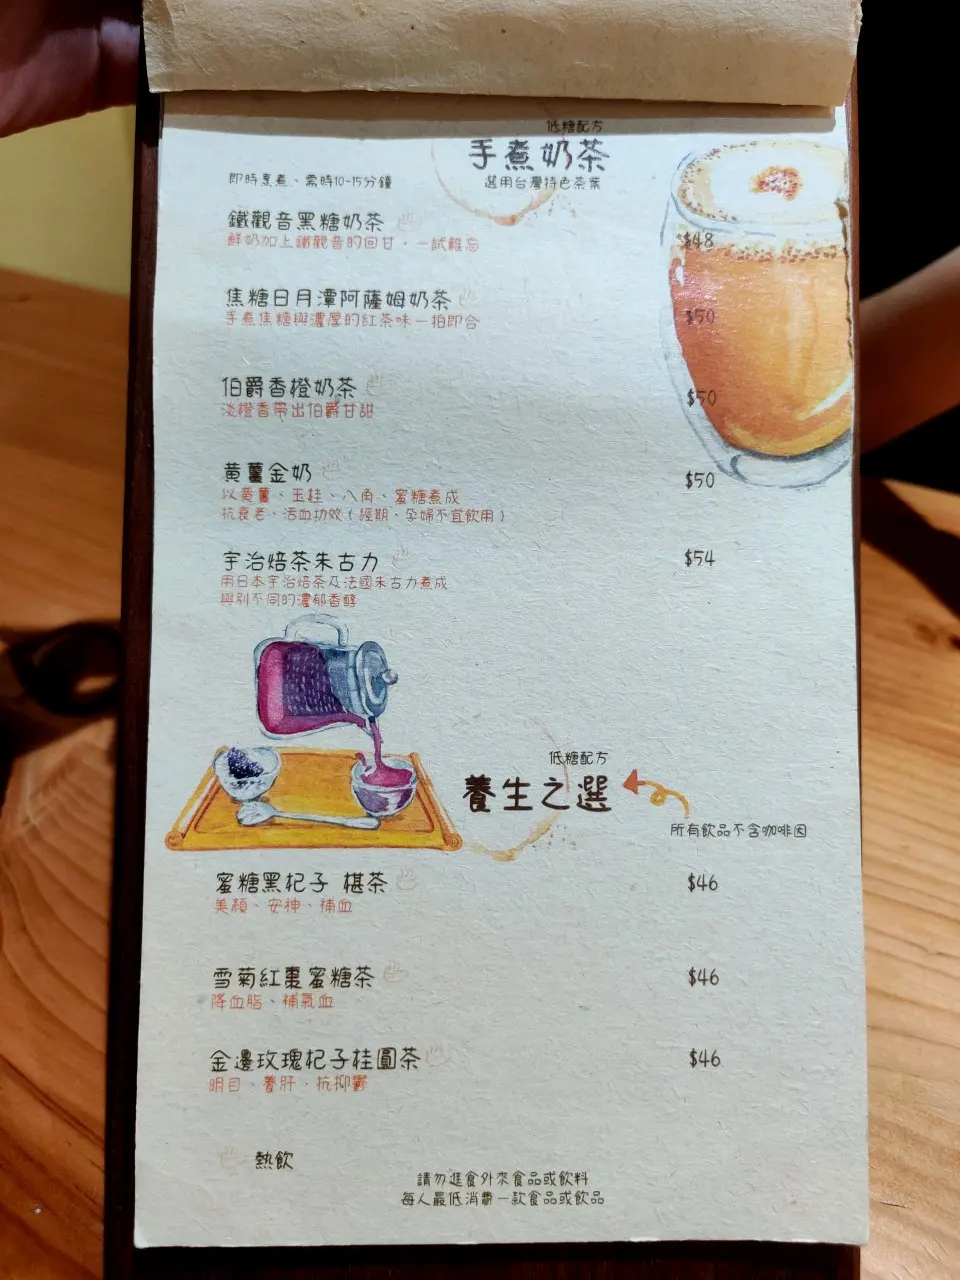 低糖配方
手煮奶茶
即時烹煮、需時10-15分鐘
選用台灣特色茶葉
鐵觀音黑糖奶茶
鮮奶加上鐵觀音的回甘，一試難忘
$48
焦糖日月潭阿薩姆奶茶
手煮焦糖與濃厚的紅茶味一拍即合
$50
伯爵香橙奶茶
淡橙香帶出伯爵甘甜
$50
黃薑金奶
$50
以黃薑、玉桂、八角、蜜糖煮成
抗衰老、活血功效（經期、孕婦不宜飲用）
宇治焙茶朱古力
$54
用日本宇治焙茶及法國朱古力煮成
與別不同的濃郁香醇
低糖配方
養生之選
所有飲品不含咖啡因
蜜糖黑杞子 椹茶
$46
美顏、安神、補血
雪菊紅棗蜜糖茶
$46
降血脂、補氣血
金邊玫瑰杞子桂圓茶
$46
明目、養肝，抗抑鬱
熱飲
請勿進食外來食品或飲料
每人最低消費一款食品或飲品